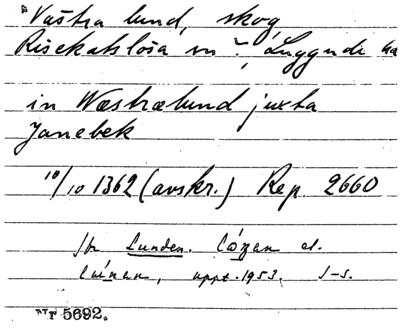 Västra lund, skog,
Risekatslösa sn, Luggude hd
in Wæstrælund juxta
Janebek
10/10 1362 (avskr.) Rep 2660
jfr Lunden. Cózan el.
uppt. 1953. J-S.
5692.